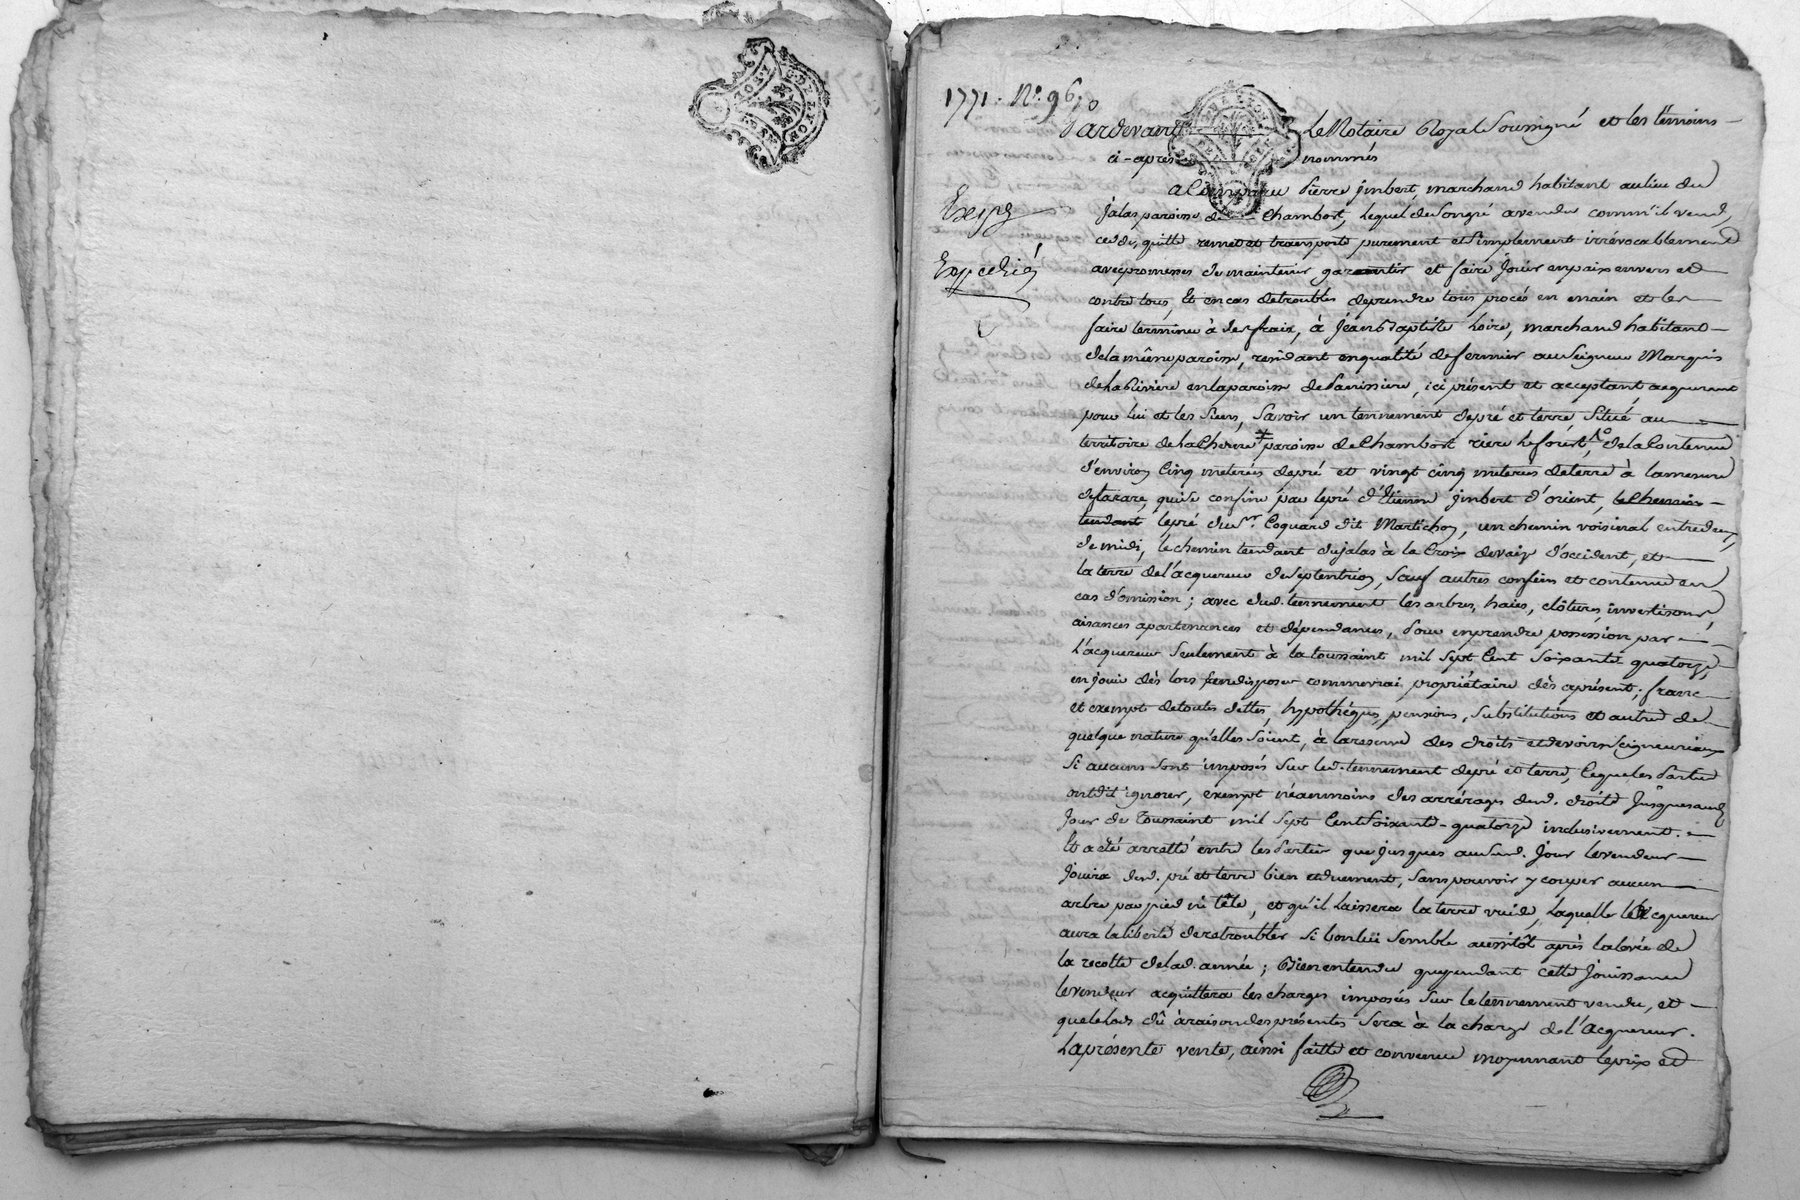 1771. N°. 96.
Pardevant Le Notaire Royal Soussigné et les témoins
ci-après nommés
a Comparu Pierre jmbert, marchand habitant au lieu du
jalas paroisse de Chambost, lequel de son gré a vendu comm'il vend,
cede, quitte remet et transporte purement et simplement irrévocablement
avec promesses de maintenir, garantir et faire jouir en paix envers et
contre tous, Et en cas de troubles de prendre tous procés en main et les
faire terminer à ses frais, à jean Baptiste Loire, marchand habitant
de la même paroisse, resident en qualité de fermier au Seigneur Marquis
de la Riviere en la paroisse de Panissiere, ici présent et acceptant, acquerant
pour lui et les siens, Savoir un tennement de pré et terre Situé au
territoire de la paroisse de Chambost riere le forêst, de la Contenue
d'environ Cinq meterées de pré et vingt cinq meterées de terre à la mesure
de tarare, qui se confine par le pré d'Etienne jmbert d'orient, le Chemin
tendant le pré du Sr. Coquard dit Martichon, un chemin voisinal entredeux,
de midi, le chemin tendant du jalas à la Croix d'occident, et
la terre de l'acquereur de Septentrion, Sauf autres confins et contenue en
cas d'omission; avec dud. tennement les arbres, haies, clôtures, investisons,
aisances apartenances et dépendances, Pour en prendre possession par
L'acquereur Seulement à la toussaint mil Sept Cent Soixante quatorze,
en jouir dès lors & en disposer comme vrai propriétaire dès aprésent; franc
et exempt de toutes dettes, hypothéques, pensions, Substitutions et autres de
quelque nature qu'elles Soient, à la reserve des droits et devoirs Seigneuriaux
Si aucuns Sont imposés Sur led. tennement de pré et terre, Ceque les Parties
ont dit ignorer, exempt néanmoins des arrérages desd. droits jusques aud.
jour de Toussaint mil Sept Cent Soixante-quatorze inclusivement.
Et a été arretté entre les Parties que jusques ausud. jour le vendeur
jouira desd. pré et terre bien et duement, Sans pouvoir y couper aucun
arbre par pied ni tête, et qu'il Laissera la terre vuide, Laquelle l'Acquereur
aura la liberté de retroubler Si bon lui Semble aussitôt après la levée de
la recolte de lad. année; Bien entendu que pendant cette jouissance
le vendeur acquittera les charges imposées Sur le tennement vendu, et
que le lods dû à raison des présentes Sera à la charge de l'Acquereur.
La présente vente, ainsi faitte et convenue moyennant le prix et
Expédié